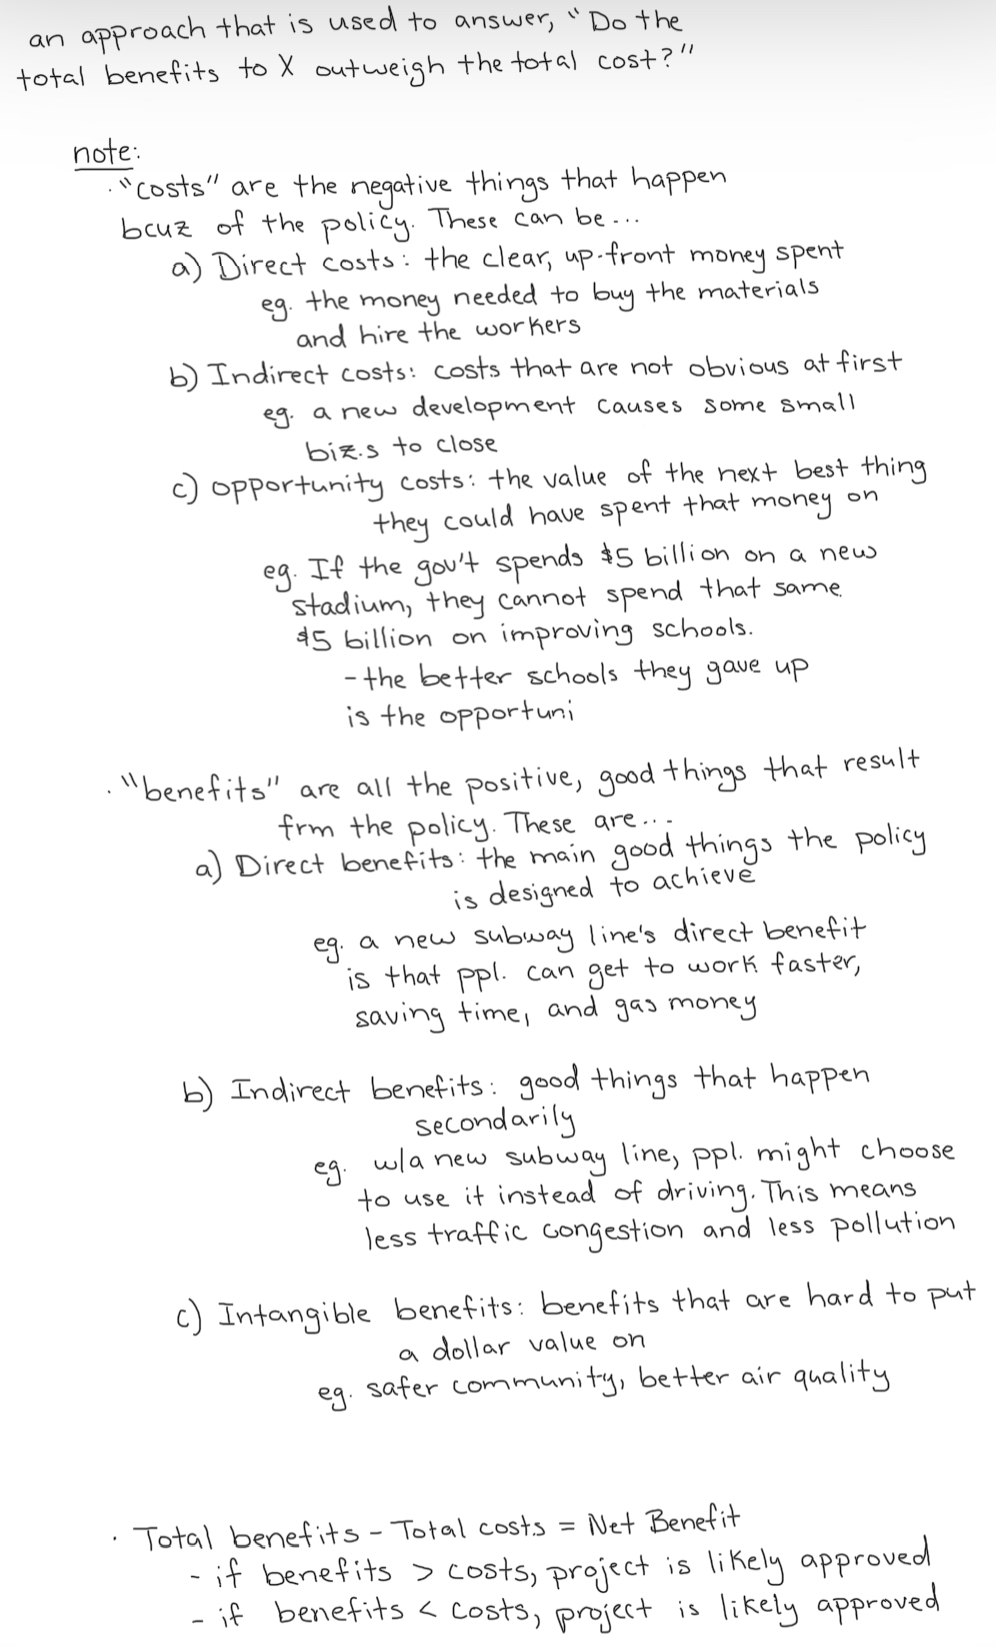 an approach that is used to answer, "Do the
total benefits to X outweigh the total cost?"
note:
· "costs" are the negative things that happen
bcuz of the policy. These can be ...
a) Direct costs: the clear, up-front money spent
eg. the money needed to buy the materials
and hire the workers
b) Indirect costs: costs that are not obvious at first
eg. a new development causes some small
biz.s to close
c) opportunity costs: the value of the next best thing
they could have spent that money on
eg. If the gov't spends $5 billion on a new
stadium, they cannot spend that same
$5 billion on improving schools.
- the better schools they gave up
is the opportuni
· "benefits" are all the positive, good things that result
frm the policy. These are...
a) Direct benefits: the main good things the policy
is designed to achieve
eg. a new subway line's direct benefit
is that ppl. can get to work faster,
saving time, and gas money
b) Indirect benefits: good things that happen
secondarily
eg. w/a new subway line, ppl. might choose
to use it instead of driving. This means
less traffic congestion and less pollution
c) Intangible benefits: benefits that are hard to put
a dollar value on
eg. safer community, better air quality
· Total benefits - Total costs = Net Benefit
- if benefits > costs, project is likely approved
- if benefits < costs, project is likely approved